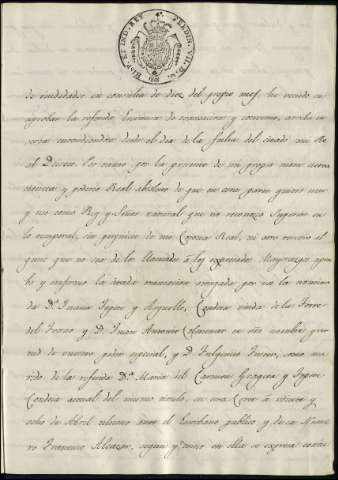 HISP. ET IND. REX FERDIN. VII. D. G.
de ciudadador en consulta de diez del propio mes he venido en
aprobar la referida Escritura de transaccion y convenio, arriba in
serta entendiendose desde el dia de la fecha del citado mi Re
al Decreto. Por tanto por la presente de mi propio motu cierta
ciencia y poderio Real absoluto de que en esta parte quiero usar
y uso como Rey y Señor natural que no reconozco Superior en
lo temporal, sin perjuicio de mi Corona Real, ni otro tercero al
guno que no sea de los llamados á los expresados Mayorazgos aprue
bo y confirmo la citada transacion otorgada por la nominada
da D.ª Juana Topin y Arguelle, Condesa viuda de la Torre
del Fresno y D. Juan Antonio en su nombre y vir
tud de vuestro poder especial, y D. Fulgencio Fuster, como ma
rido de la referida D.ª Maria del Carmen y Topin
Condesa actual del mismo titulo, en esa Corte á veinte y
ocho de Abril ultimo ante el Escribano publico y de su Nume
ro Francisco Alcazar, segun y como en ella se expresa contie